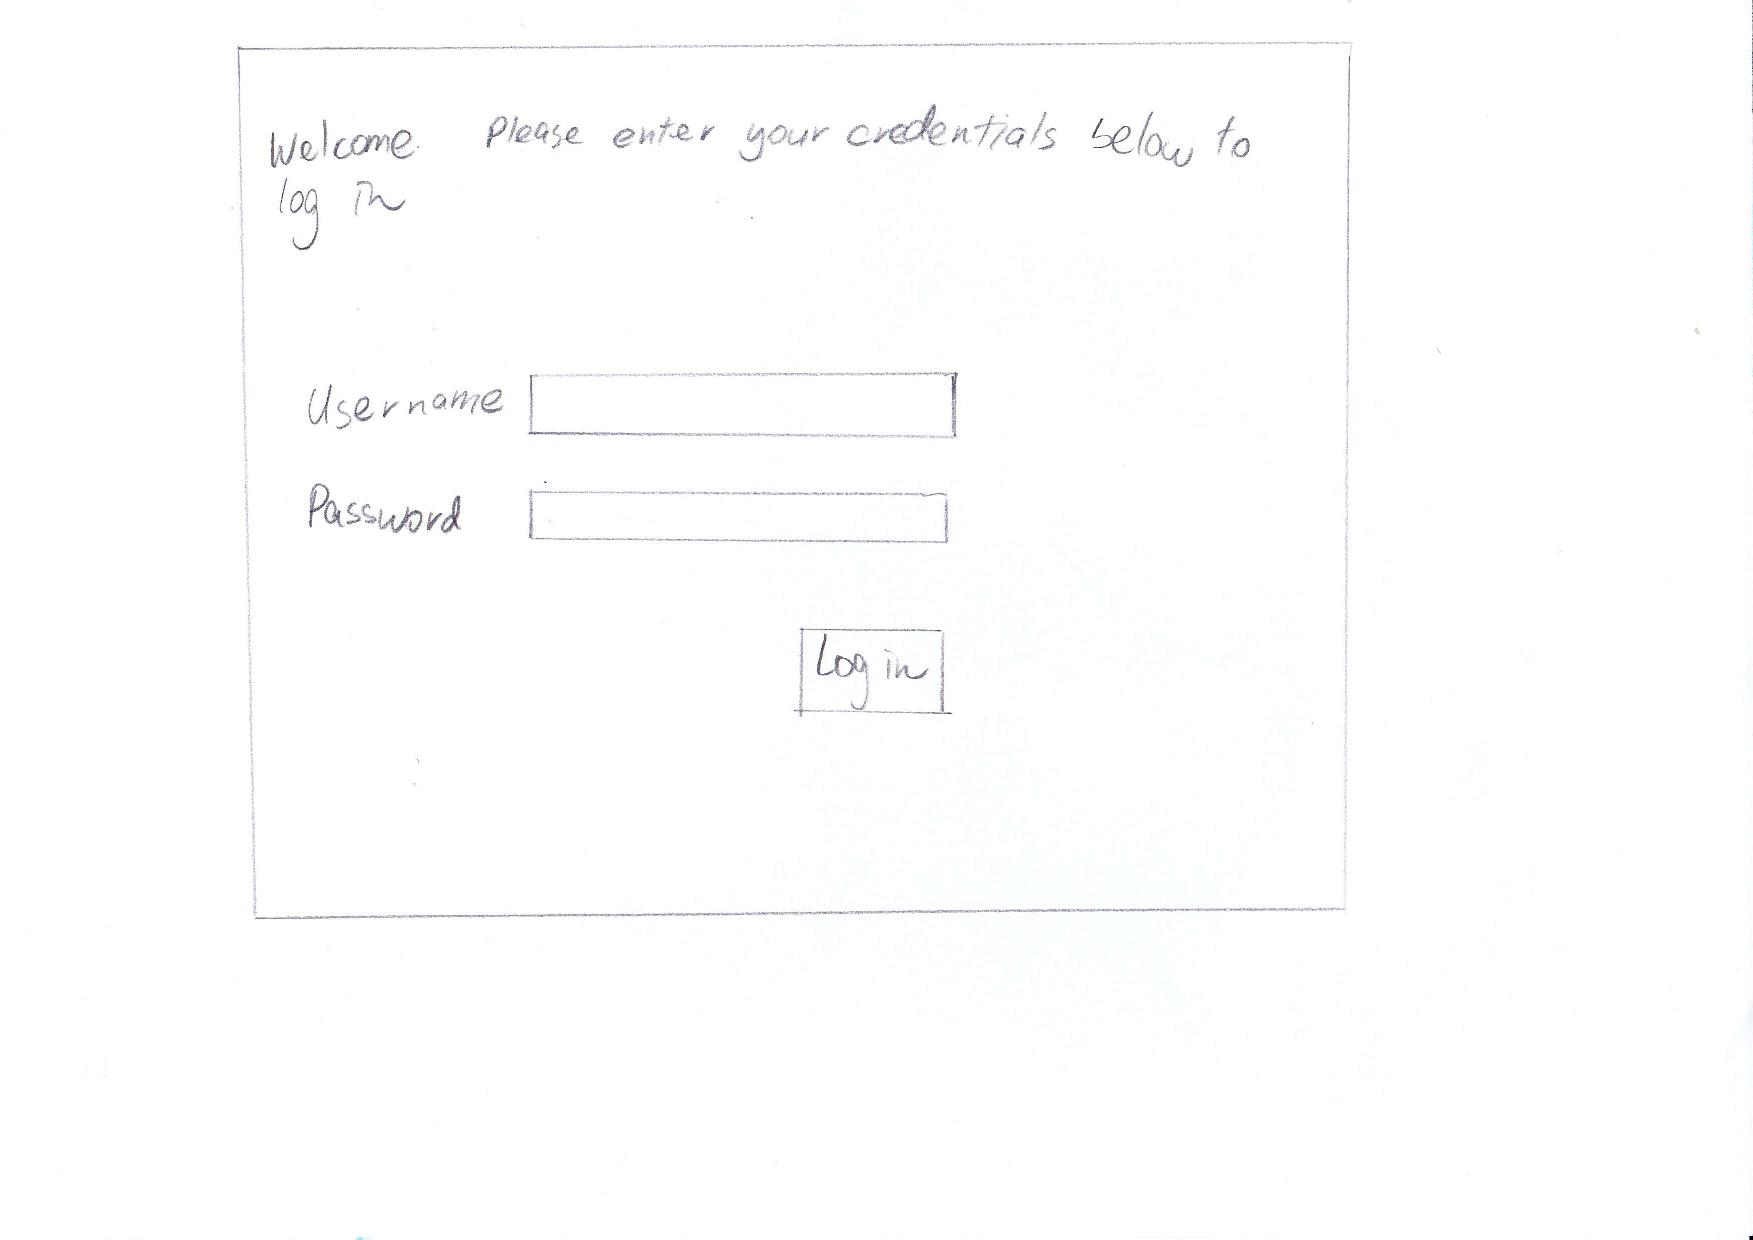 Welcome. Please enter your credentials below to
log in
Username
Password
Log in